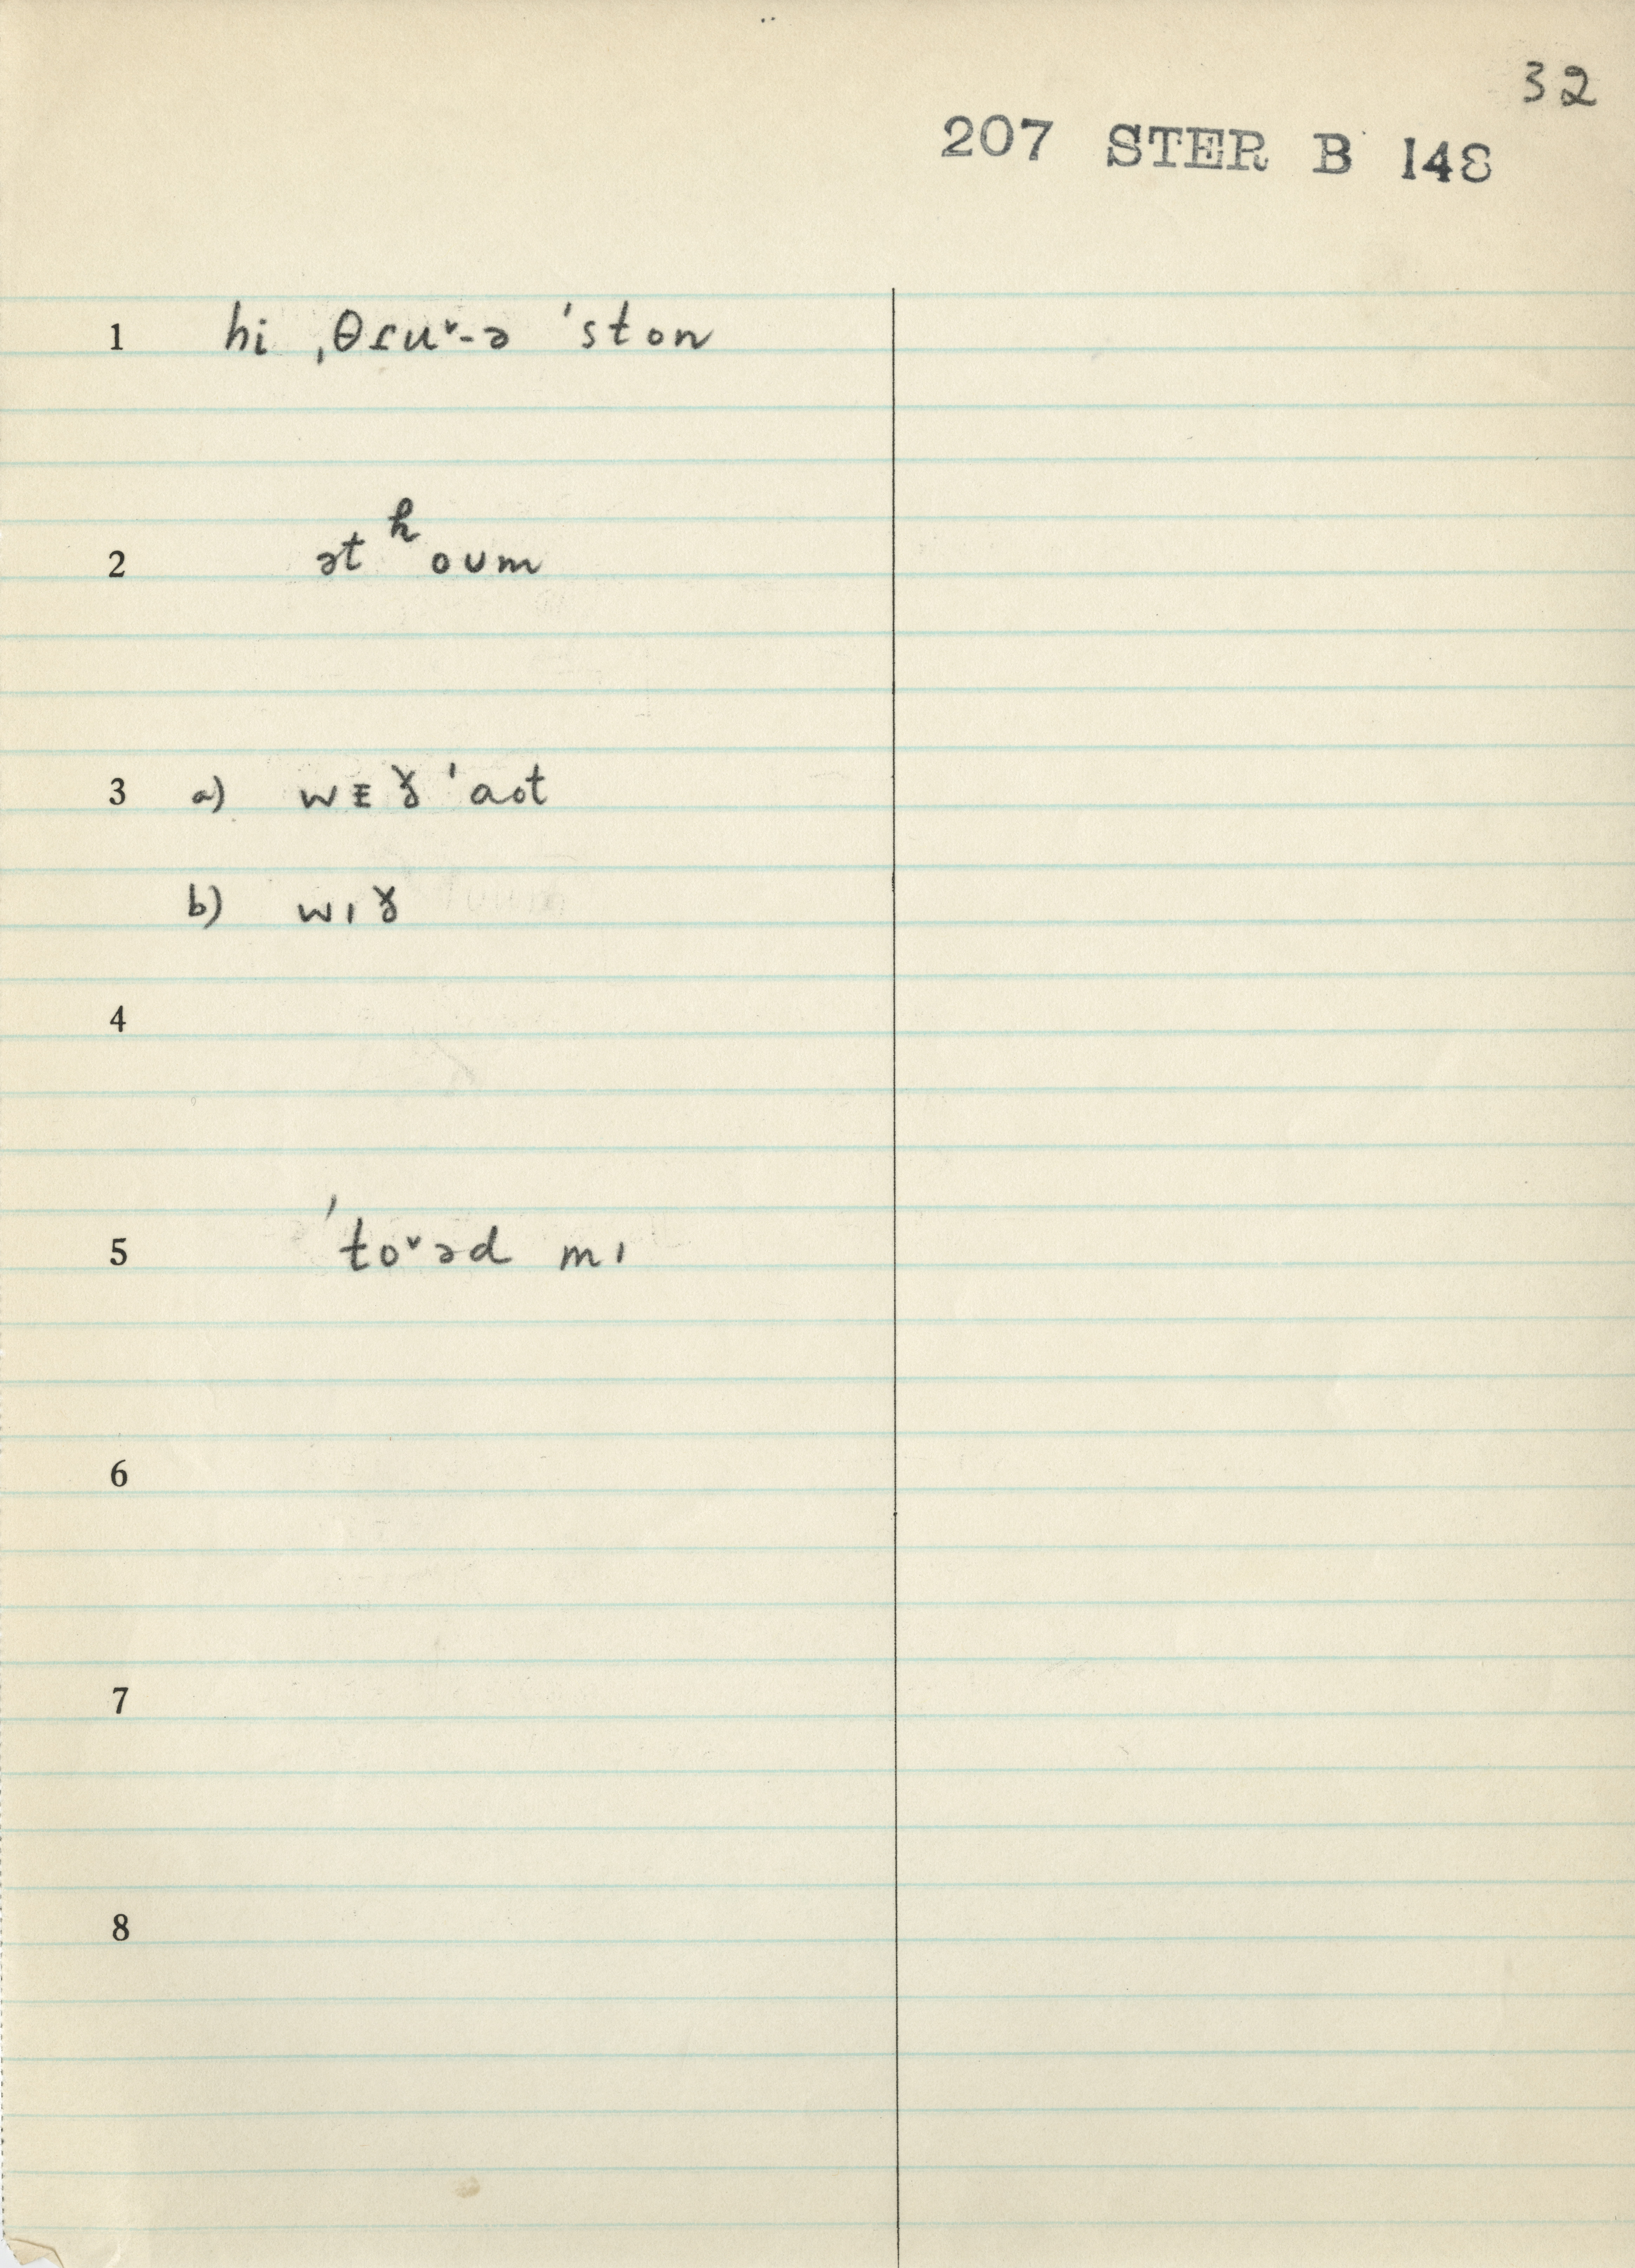 32
207 STER B 148
1 hi ˌθɾu˅-ə ˈston
2 ət ʰoʊm
3 a) wᴇɤ ˈaot
b) wıɤ
4
5 ˈto˅əd mı
6
7
8